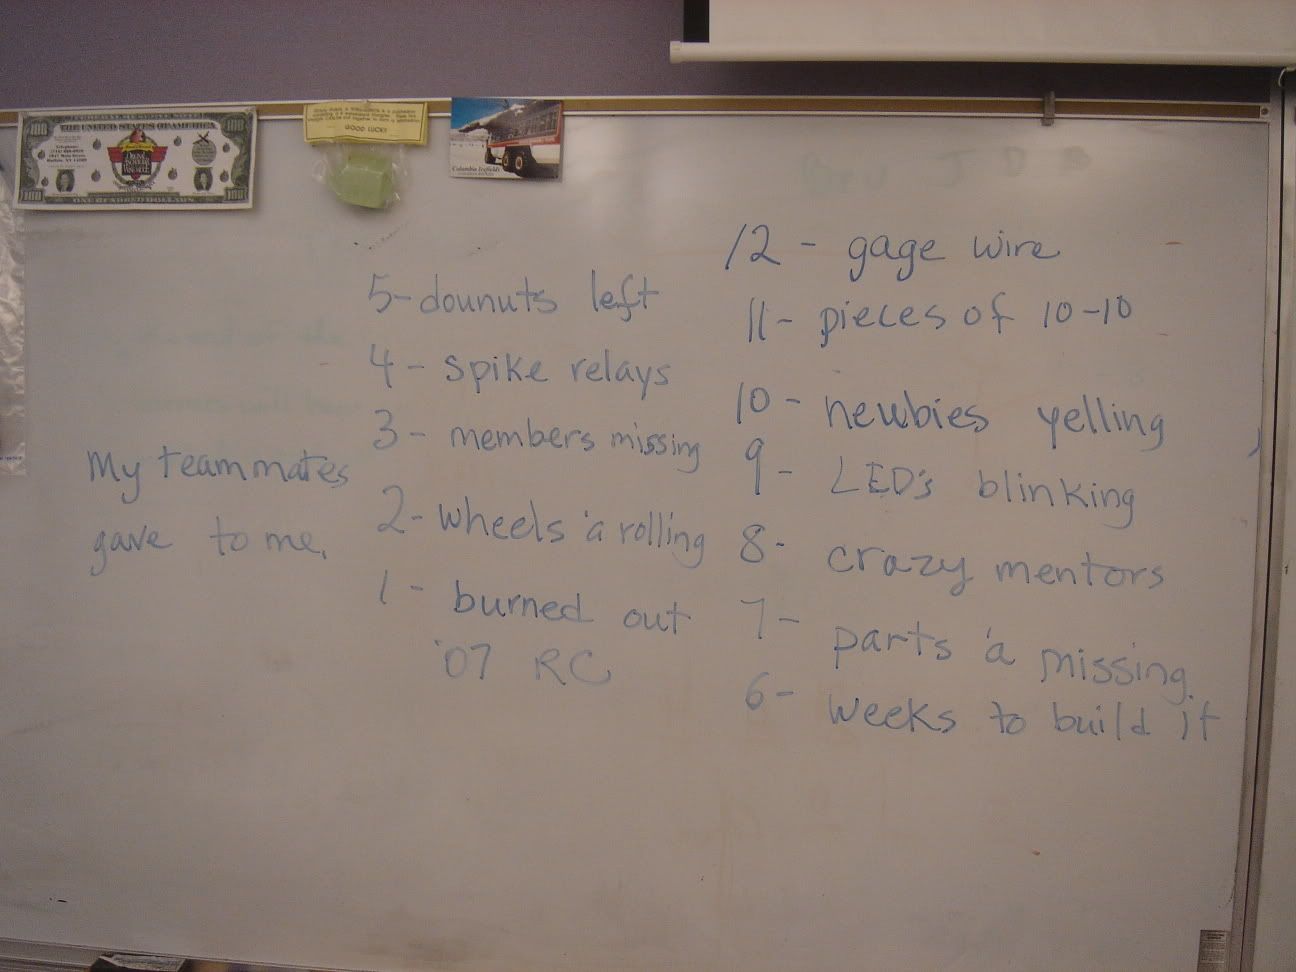 100
THE UNITED STATES OF AMERICA
100
100
ONE HUNDRED DOLLARS
100
GOOD LUCK!
Columbia Icefields
My teammates
gave to me,
5- dounuts left
4- spike relays
3- members missing
2- wheels 'a rolling
1- burned out
'07 RC
12 - gage wire
11- pieces of 10-10
10- newbies yelling
9- LED's blinking
8- crazy mentors
7- parts 'a missing
6- weeks to build it